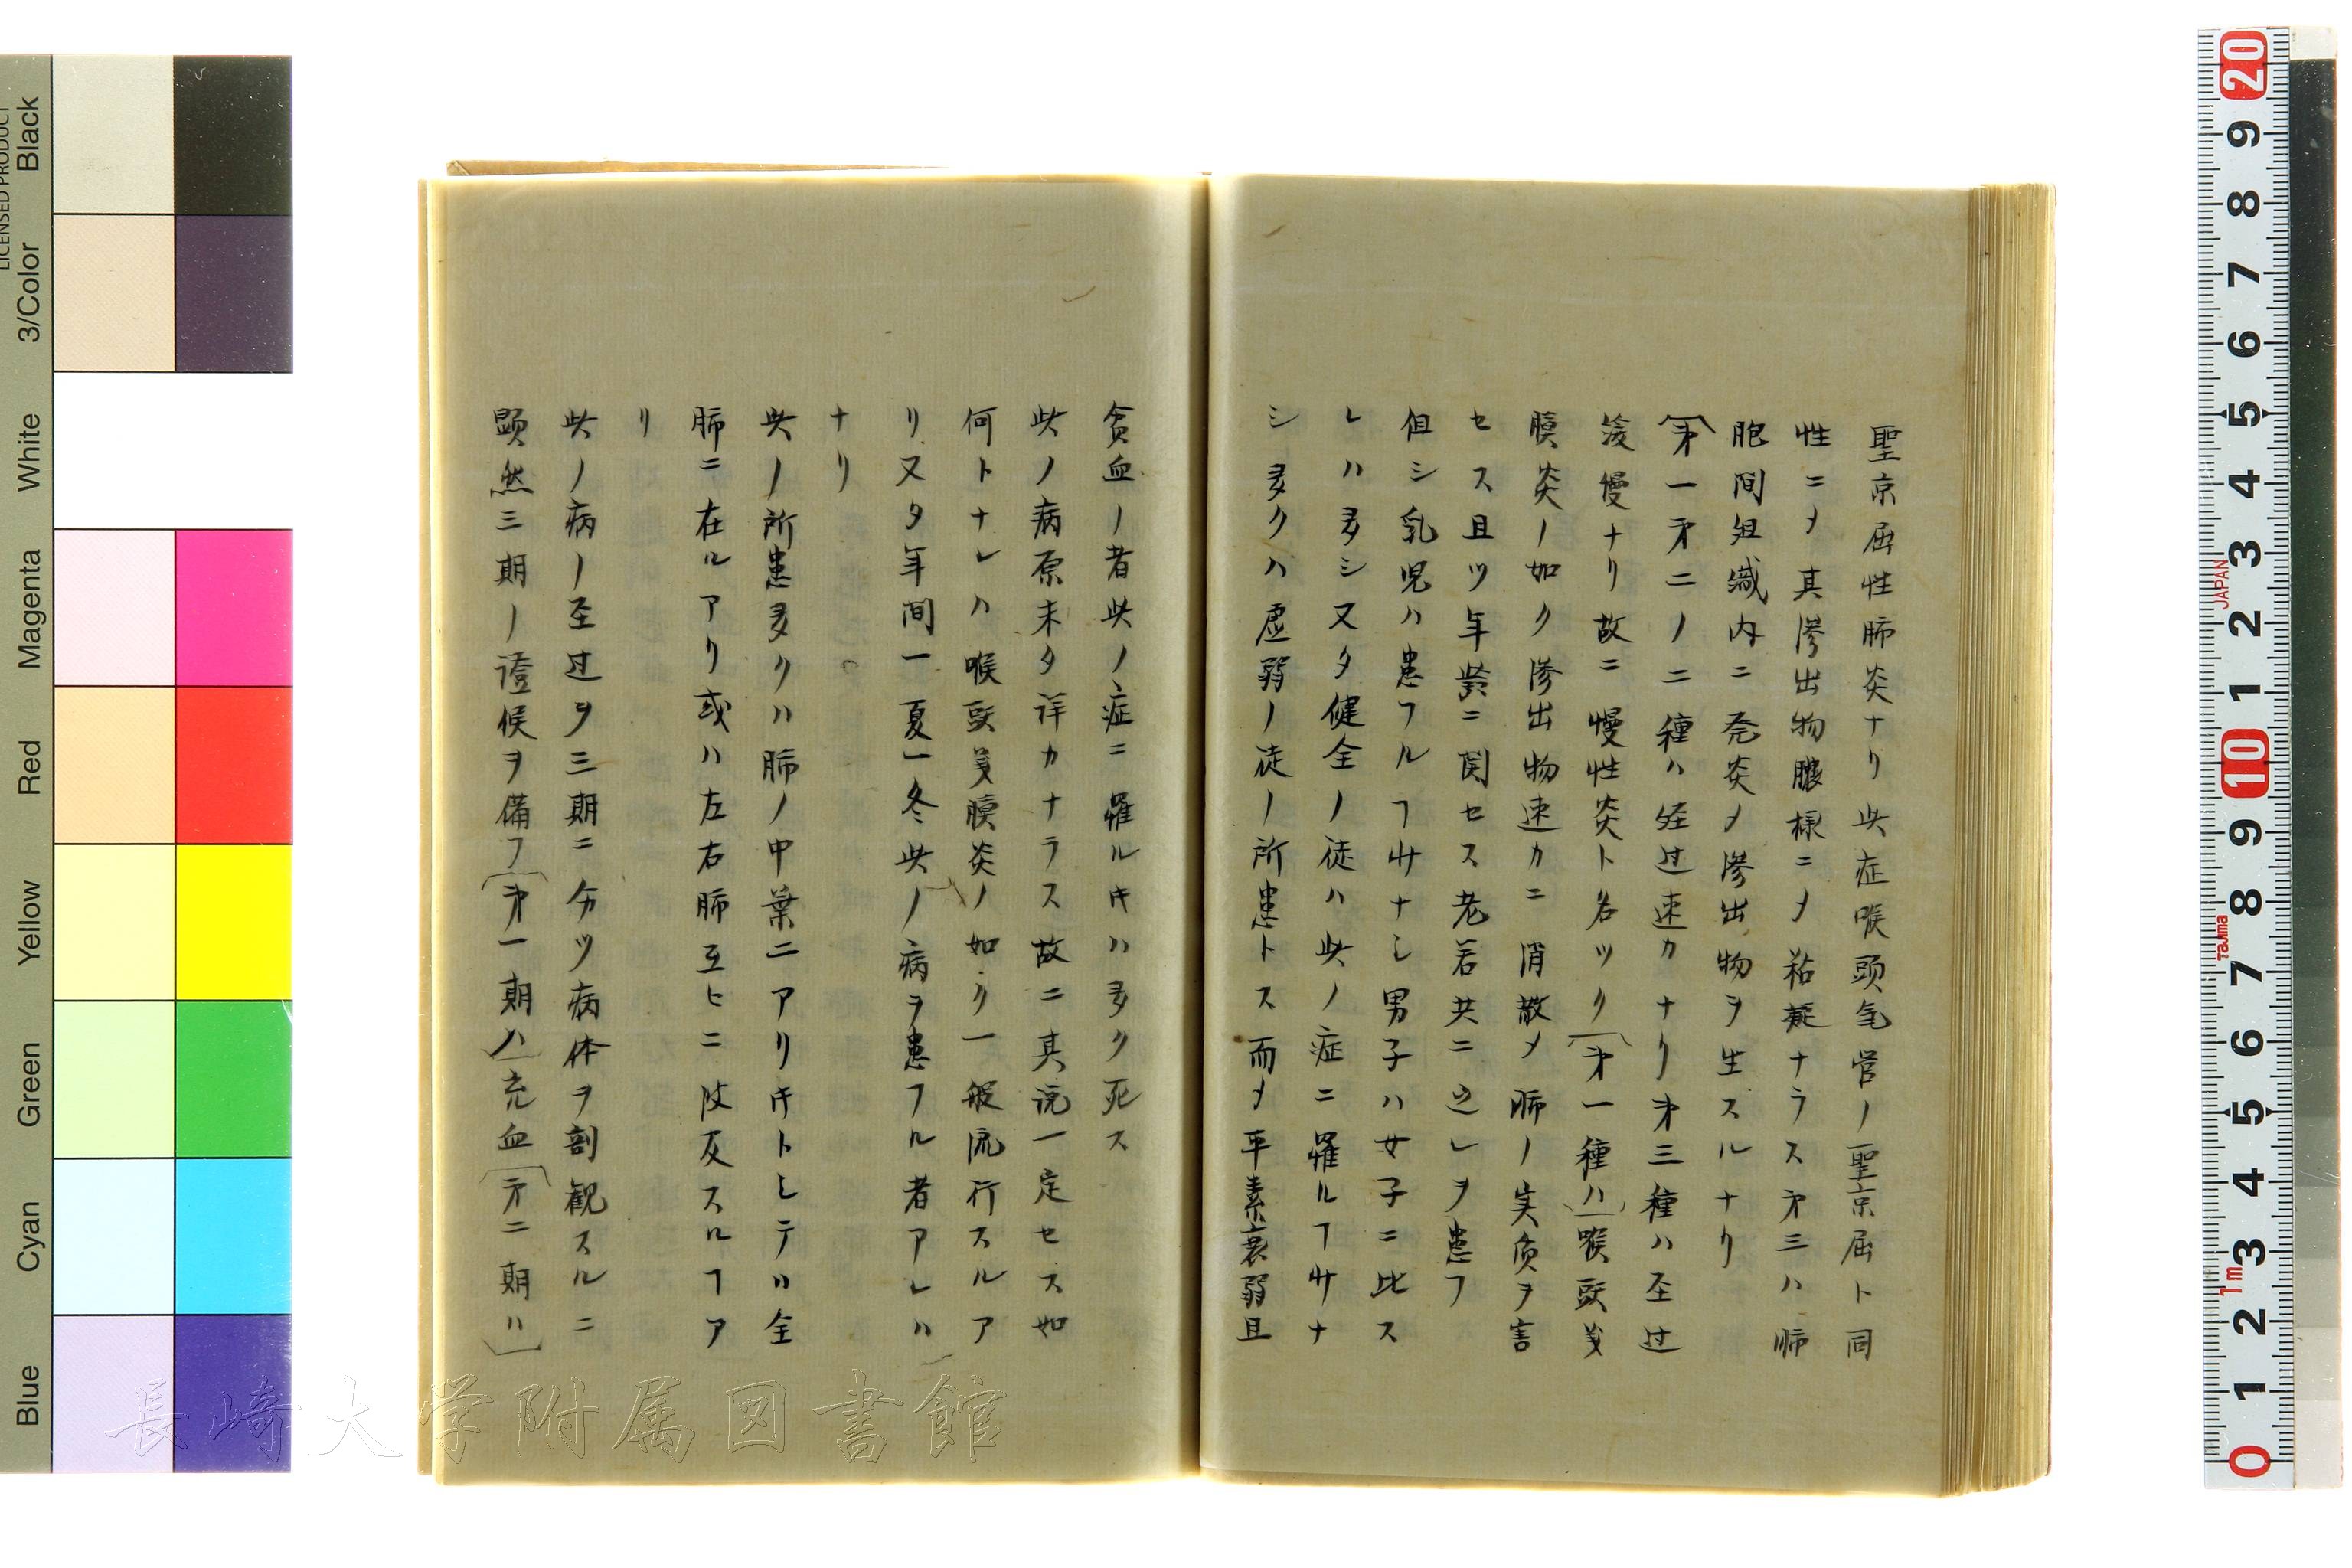 聖京屈性肺炎ナリ此症喉頭気管ノ聖京屈ト同
性ニメ其滲出物膿様ニメ粘凝ナラス才三ハ肺
胞間組織内ニ発炎メ滲出物ヲ生スルナリ
才一才二ノ二種ハ経過速カナリ才三種ハ圣过
緩慢ナリ故ニ慢性炎ト名ツク才一種ハ喉頭羙
膜炎ノ如ク滲出物速カニ消散メ肺ノ実质ヲ害
セス且ツ年齢ニ関セス老若共ニ之レヲ患フ
但シ乳児ハ患フルフ少ナシ男子ハ女子ニ比ス
レハ多シ又タ健全ノ徒ハ此ノ症ニ罹ルフ少ナ
シ多クハ虚弱ノ徒ノ所患トス而メ平素衰弱且
貧血ノ者此ノ症ニ罹ルキハ多ク死ス
此ノ病原未タ詳カナラス故ニ其説一定セス如
何トナレハ喉頭羙膜炎ノ如ク一般流行スルア
リ又タ年間一夏一冬此ノ病ヲ患フル者アレハ
ナリ
此ノ所患多クハ肺ノ中葉ニアリキトシテハ全
肺ニ在ルアリ或ハ左右肺互ヒニ波及スルフア
リ
此ノ病ノ圣过ヲ三期ニ分ツ病体ヲ剖観スルニ
顕然三期ノ證候ヲ備フ才一期ハ充血才二期ハ
長崎大学附属図書館
Black
3/Color
White
Magenta
Red
Yellow
Green
Cyan
Blue
LICENSED PRODUCT
20 9 8 7 6 5 4 3 2 1 10 9 8 7 6 5 4 3 2 1 0
JAPAN
Tajima
1m